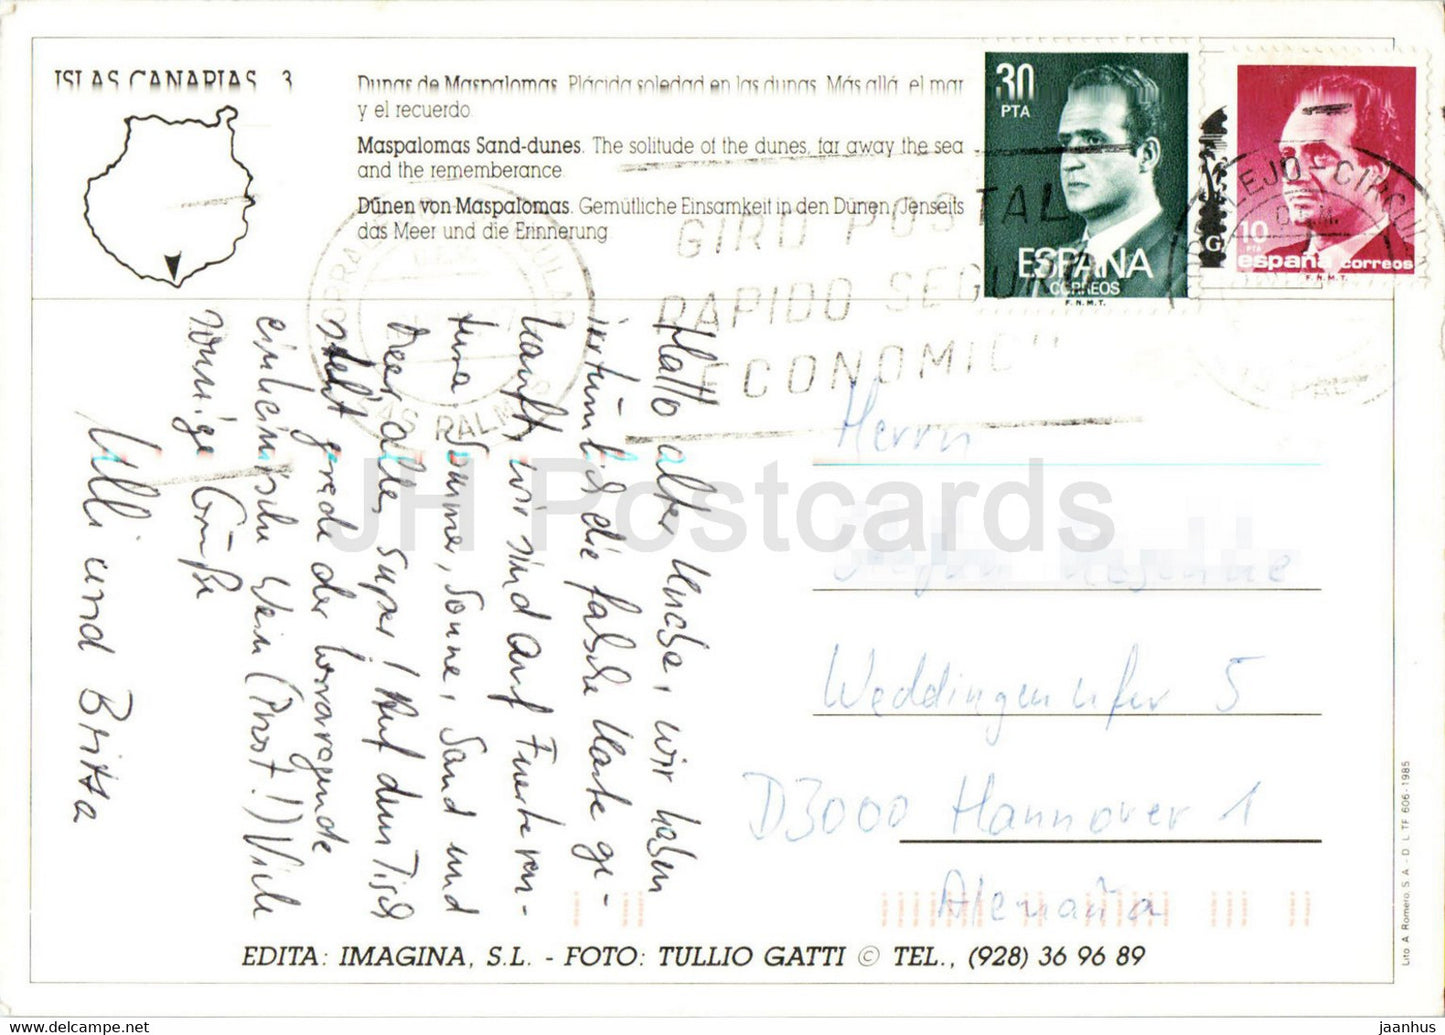 ISLAS CANARIAS 3
Dunas de Maspalomas. Plácida soledad en las dunas. Más allá, el mar
y el recuerdo.
Maspalomas Sand-dunes. The solitude of the dunes, far away the sea
and the rememberance.
Dünen von Maspalomas. Gemütliche Einsamkeit in den Dünen. Jenseits
das Meer und die Erinnerung.
30
PTA
ESPAÑA
CORREOS
F.N.M.T.
10
PTA
españa correos
F.N.M.T.
GIRO POSTAL
RAPIDO SEGURO
ECONOMICO
LAS PALMAS
Hallo alter, wir haben
irrtümlich die falsche Karte ge-
kauft, wir sind auf Fuerteven-
tura, Sommer, Sonne, Sand und
Meer, alles super! Auf dem Tisch
steht gerade der hervorragende
einheimische Wein (Prost!) Viele
sonnige Grüße
Ulli und Britta
Herrn
Weddingenufer 5
D3000 Hannover 1
Alemaña
JH Postcards
EDITA: IMAGINA, S.L. - FOTO: TULLIO GATTI © TEL., (928) 36 96 89
Lito A. Romero, S.A. - D. L. TF 606-1985
www.delcampe.net
jaanhus